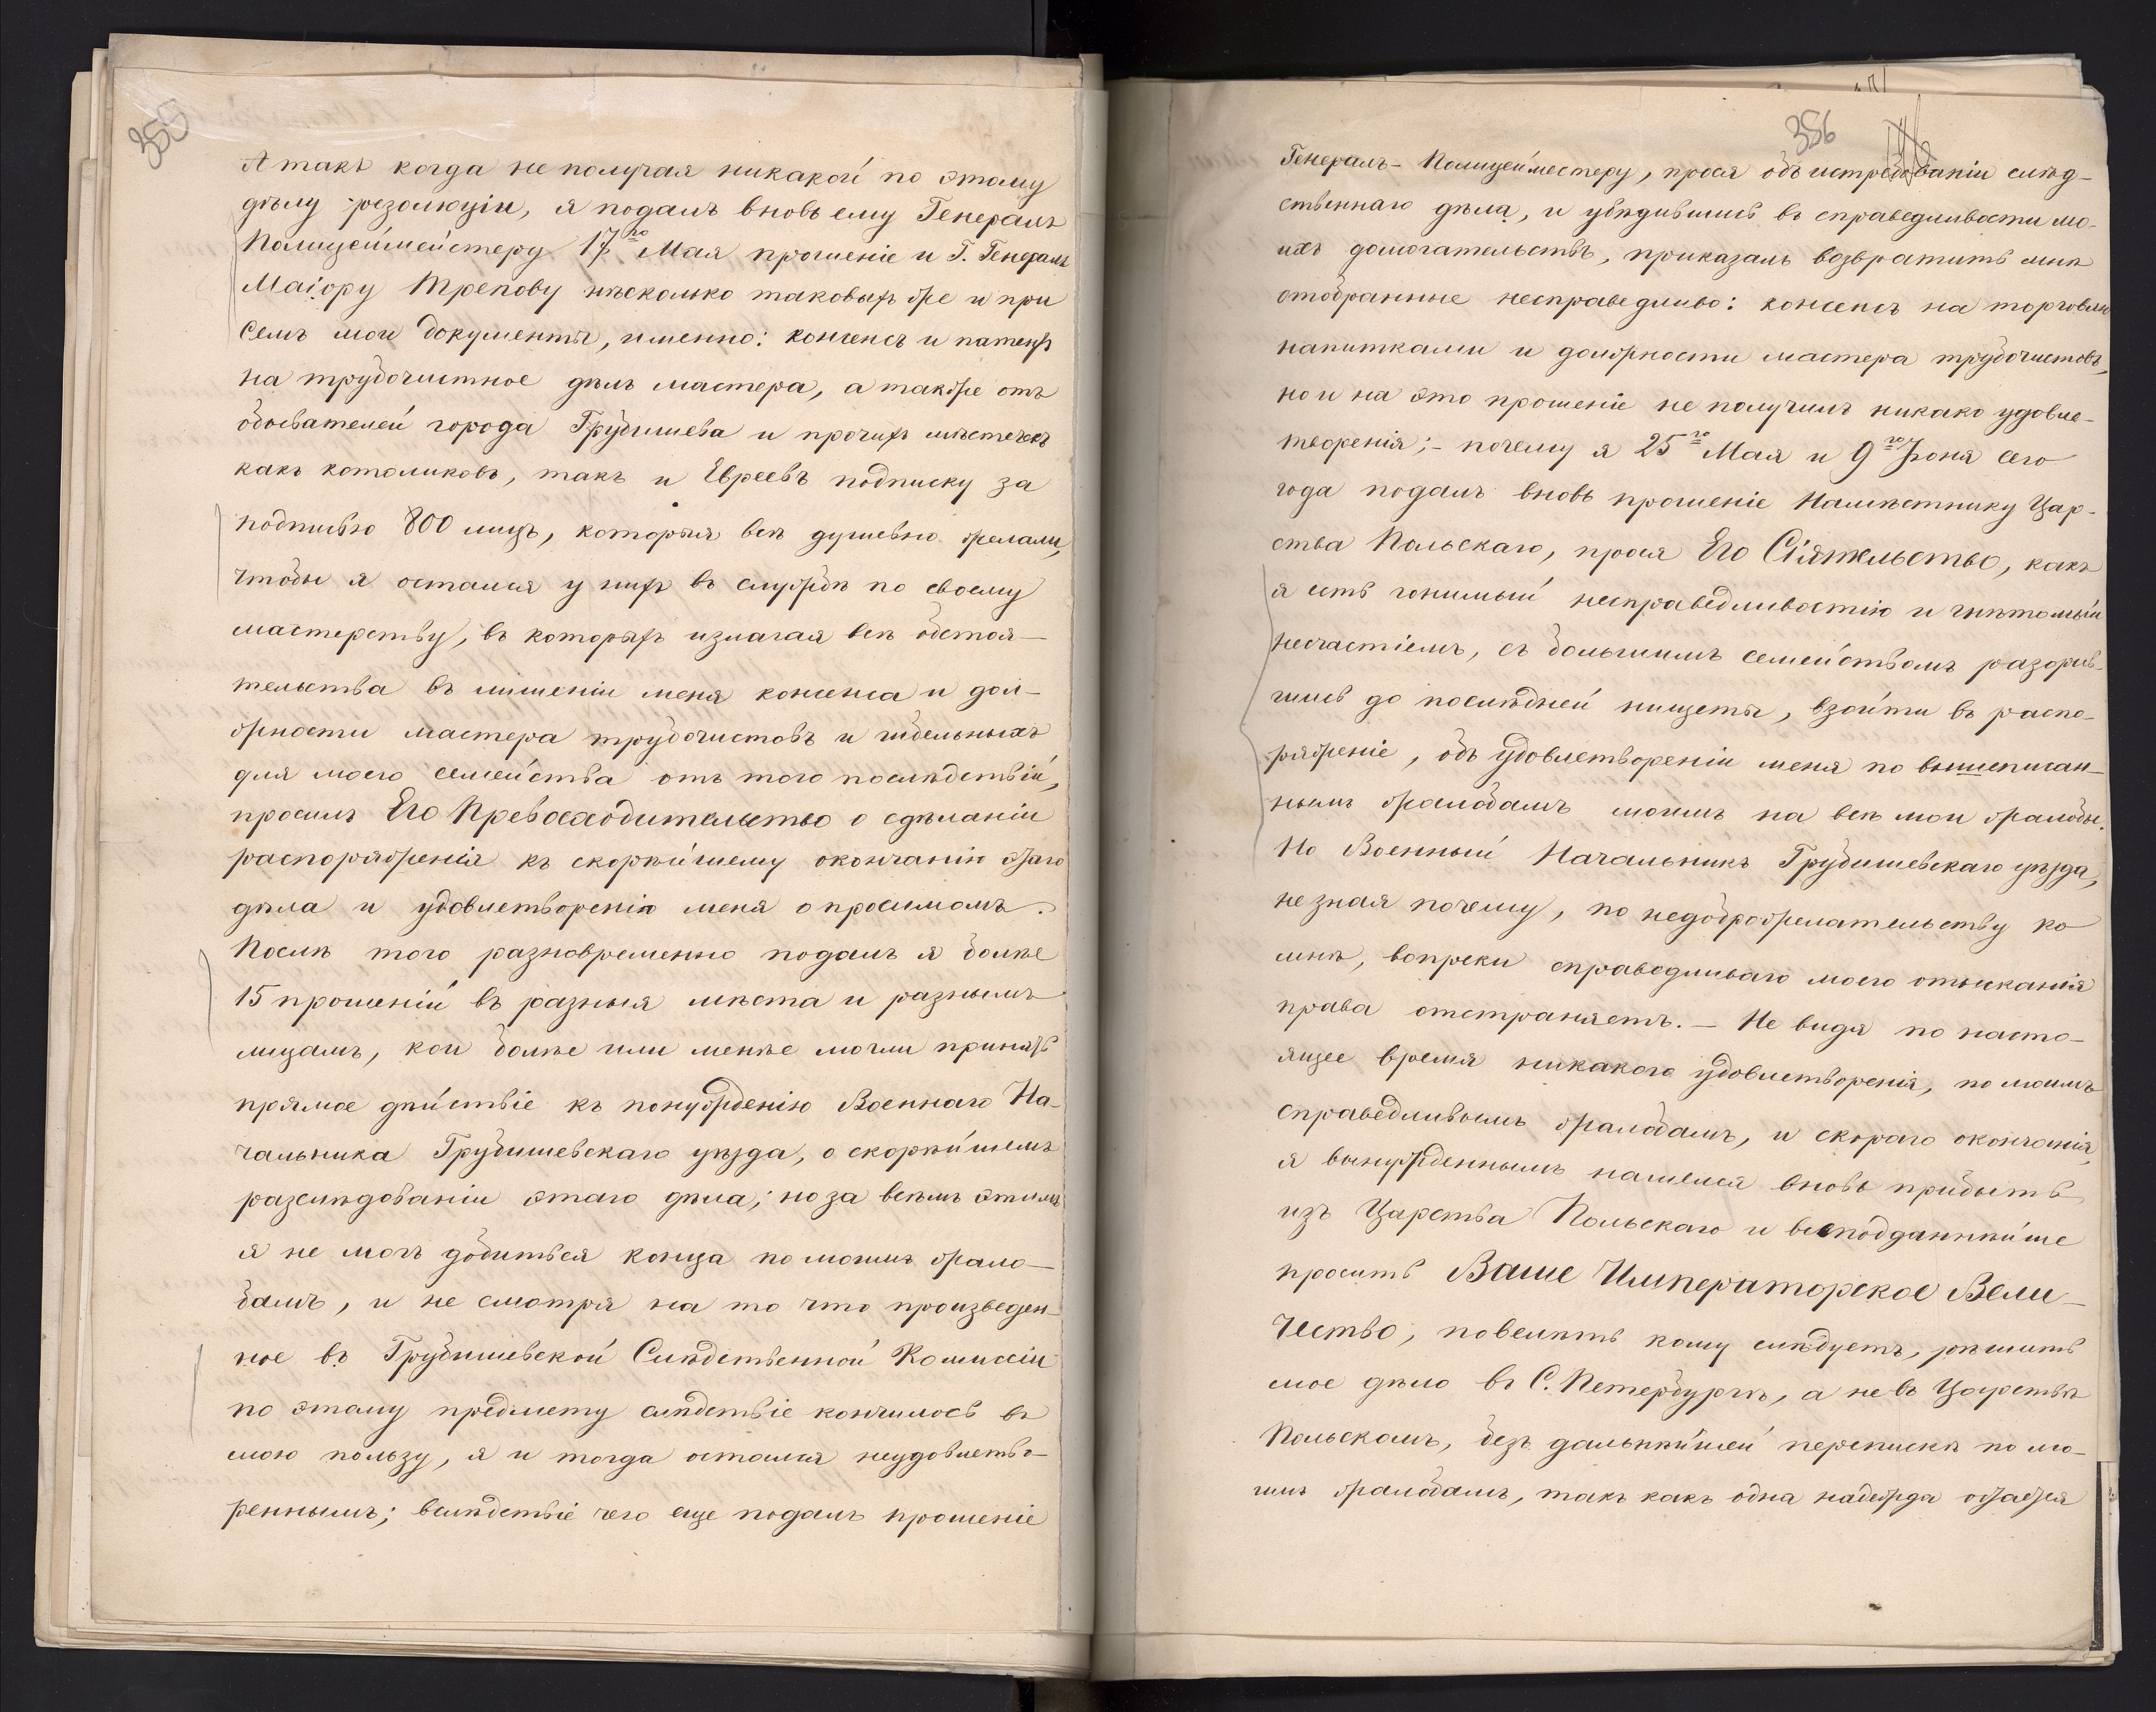 355
А такъ когда не получая никакой по этому
дѣлу резолюціи, я подалъ вновь ему Генералъ
Полицеймейстеру 17го Мая прошеніе и Г. Генералъ
Маіору Трепову нѣсколько таковыхъ же и при
семъ мои документы, именно: консенсъ и патентъ
на трубочистное дѣлъ мастера, а также отъ
обывателей города Грубишева и прочихъ мѣстечекъ
какъ католиковъ, такъ и Евреевъ подписку за
подписью 800 лицъ, которыя всѣ душевно желали,
чтобы я остался у нихъ въ службѣ по своему
мастерству, въ которыхъ излагая всѣ обстоя-
тельства въ лишеніи меня консенса и дол-
жности мастера трубочистовъ и гибельныхъ
для моего семейства отъ того послѣдствій,
просилъ Его Превосходительство о сдѣланіи
распоряженія къ скорѣйшему окончанію этаго
дѣла и удовлетворенію меня о просимомъ.
Послѣ того разновременно подалъ я болѣе
15 прошеній въ разныя мѣста и разнымъ
лицамъ, кои болѣе или менѣе могли принять
прямое дѣйствіе къ понужденію Военнаго На-
чальника Грубишевскаго уѣзда, о скорѣйшемъ
разслѣдованіи этаго дѣла; но за всѣмъ этимъ
я не могъ добиться конца по моимъ жало-
бамъ, и не смотря на то что произведен-
ное въ Грубишевской Слѣдственной Комиссіи
по этому предмету слѣдствіе кончилось въ
мою пользу, я и тогда остался неудовлетво-
реннымъ; вслѣдствіе чего еще подалъ прошеніе
356
Генералъ-Полицейместеру, прося объ истребованіи слѣд-
ственнаго дѣла, и убѣдившись въ справедливости мо-
ихъ домогательствъ, приказалъ возвратить мнѣ
отобранные несправедливо: консенсъ на торговлю
напитками и должности мастера трубочистовъ,
но и на это прошеніе не получилъ никако удовле-
творенія; - почему я 25го Мая и 9го Іюня сего
года подалъ вновь прошеніе Намѣстнику Цар-
ства Польскаго, прося Его Сіятельство, какъ
я есть гонимый несправедливостію и гнѣтомый
несчастіемъ, съ большимъ семействомъ разорив-
шись до послѣдней нищеты, взойти въ распо-
ряженіе, объ удовлетвореніи меня по вышеписан-
нымъ жалобамъ моимъ на всѣ мои жалобы.
Но Военный Начальникъ Грубишевскаго уѣзда,
не зная почему, по недоброжелательству ко
мнѣ, вопреки справедливаго моего отысканія
права отстраняетъ. - Не видя по насто-
ящее время никакого удовлетворенія, по моимъ
справедливымъ жалобамъ, и скораго окончанія,
я вынужденнымъ нашелся вновь прибыть
изъ Царства Польскаго и всеподданнѣйше
просить Ваше Императорское Вели-
чество, повелѣть кому слѣдуетъ, рѣшить
мое дѣло въ С. Петербургѣ, а не въ Царствѣ
Польскомъ, безъ дальнѣйшей переписки по мо-
имъ жалобамъ, такъ какъ одна надежда остается